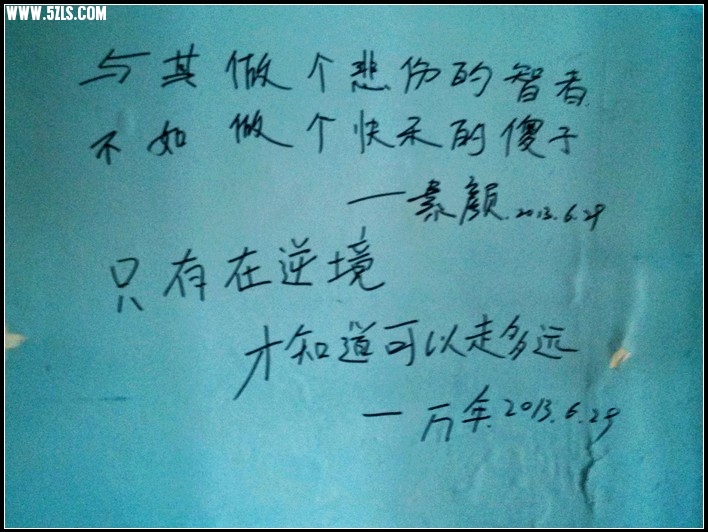 WWW.5ZLS.COM
与其做个悲伤的智者
不如做个快乐的傻子
一素颜.2013.6.29
只有在逆境
才知道可以走多远
一万年.2013.6.29